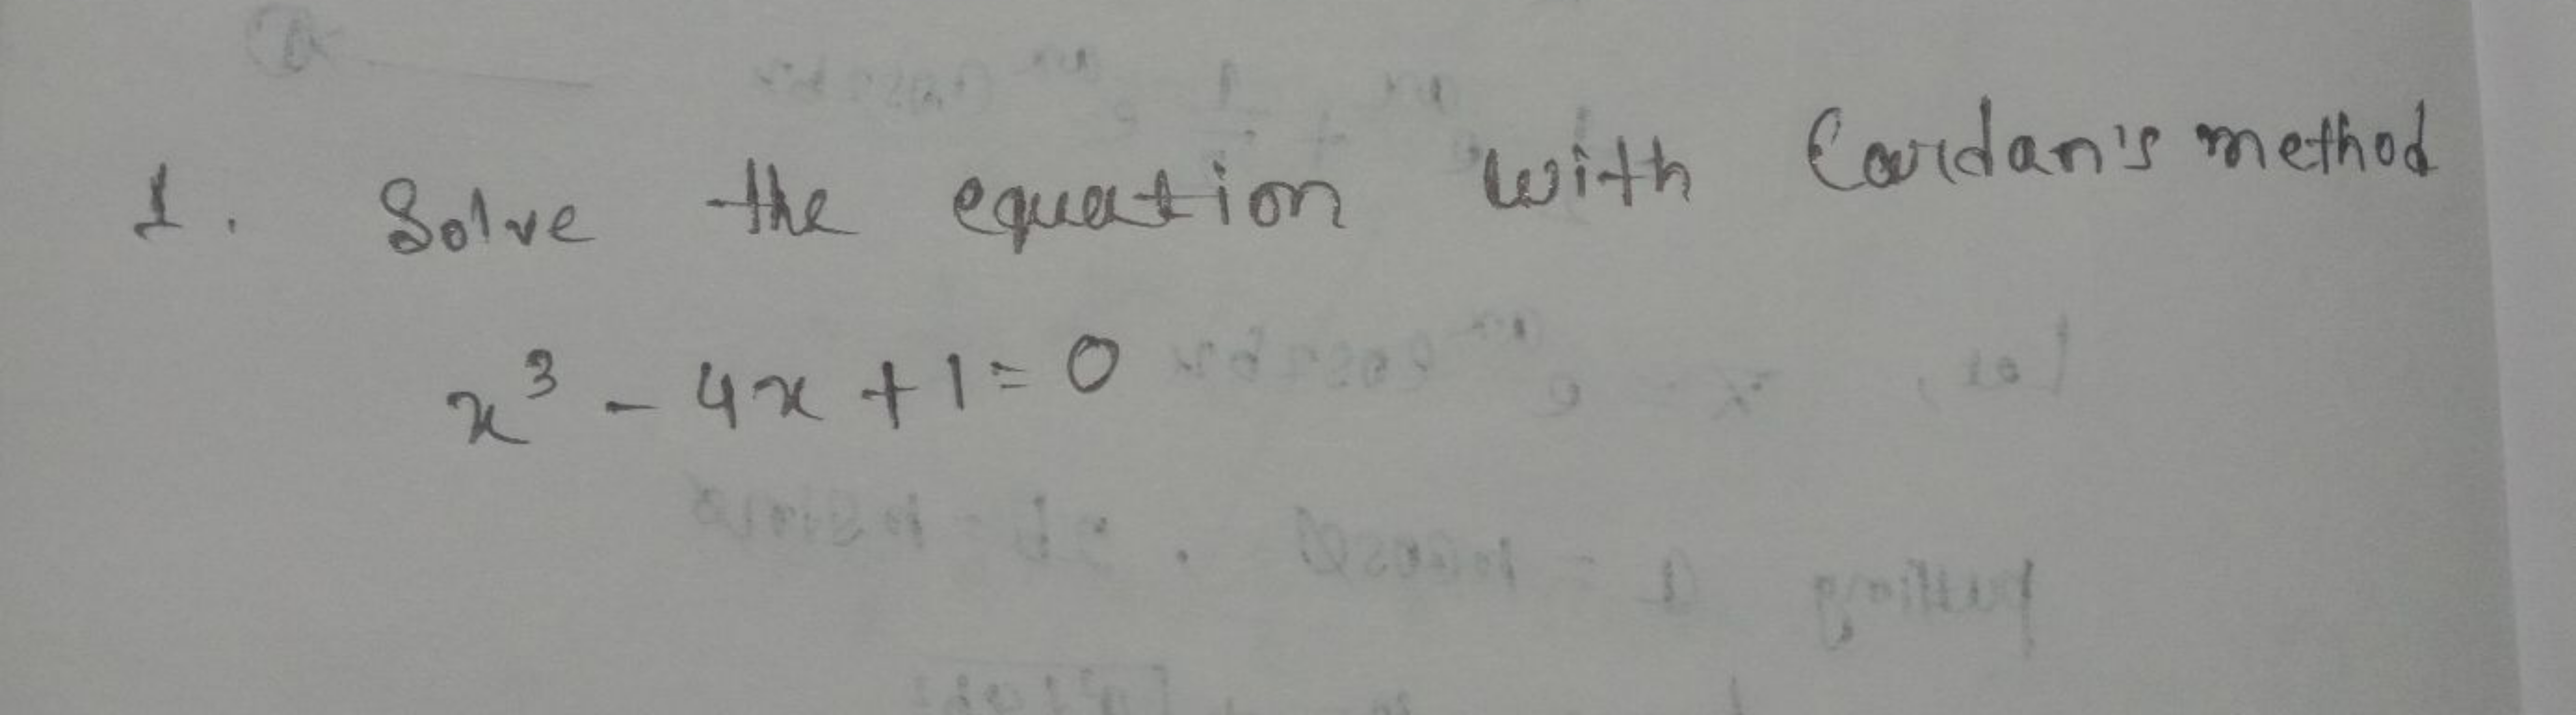 1. Solve the equation with Cardan's method
x³ - 4x + 1 = 0